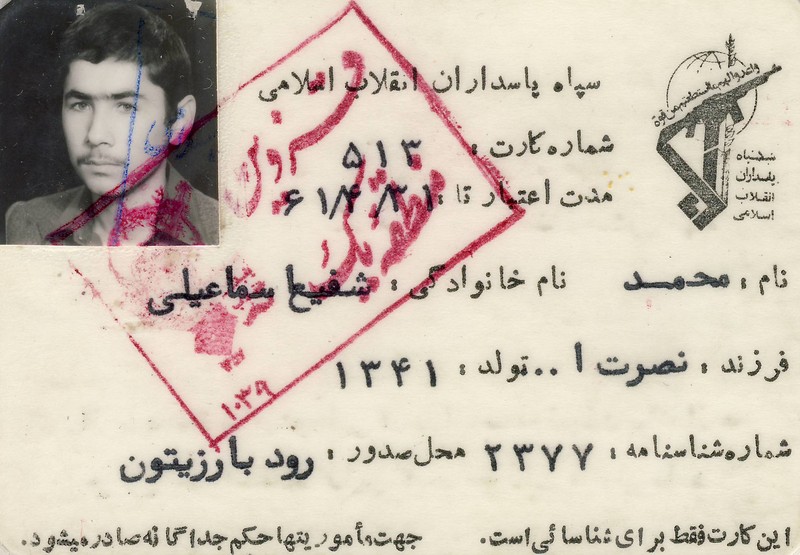 سپاه پاسداران انقلاب اسلامی
واعدوا لهم ما استطعتم من قوة
سپاه
پاسداران
انقلاب
اسلامی
شماره کارت : ۵۱۳
مدت اعتبار تا : ۶۱/۴/۳۱
نام : محمد نام خانوادگی : شفیعا سماعیلی
فرزند : نصرت ا .. تولد : ۱۳۴۱
شماره شناسنامه : ۲۳۷۷ محل صدور : رود بارزیتون
این کارت فقط برای شناسائی است. جهت مأموریتها حکم جداگانه صادر میشود.
منطقه یک
۱۰۳۹